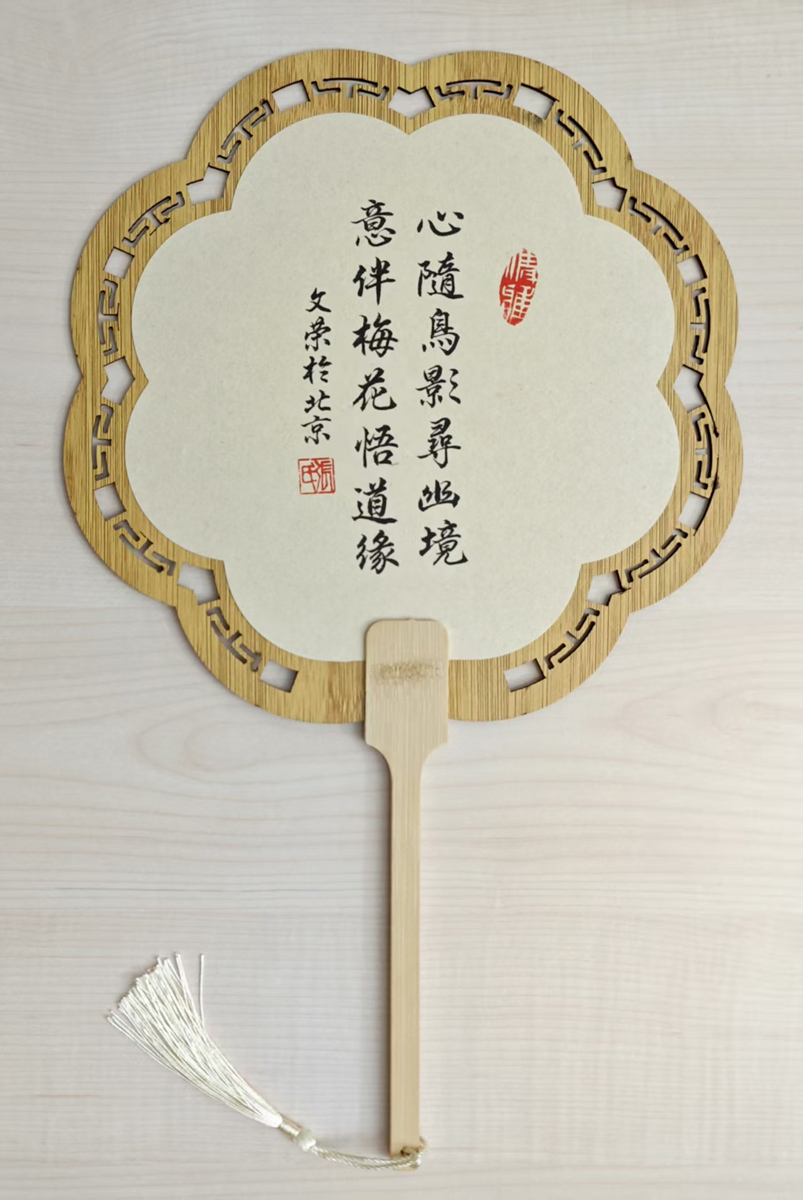 心隨鳥影尋幽境
意伴梅花悟道緣
文荣於北京
張氏